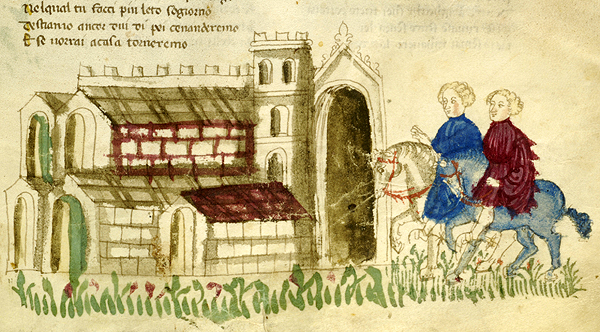 Nelqual tu facci piu leto sogiorno
Estiamo ancor dui di poi cenanderemo
E se uorrai acasa torneremo